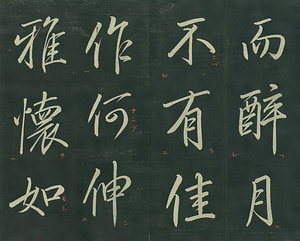 而醉月
不有佳
作何伸
雅懷如